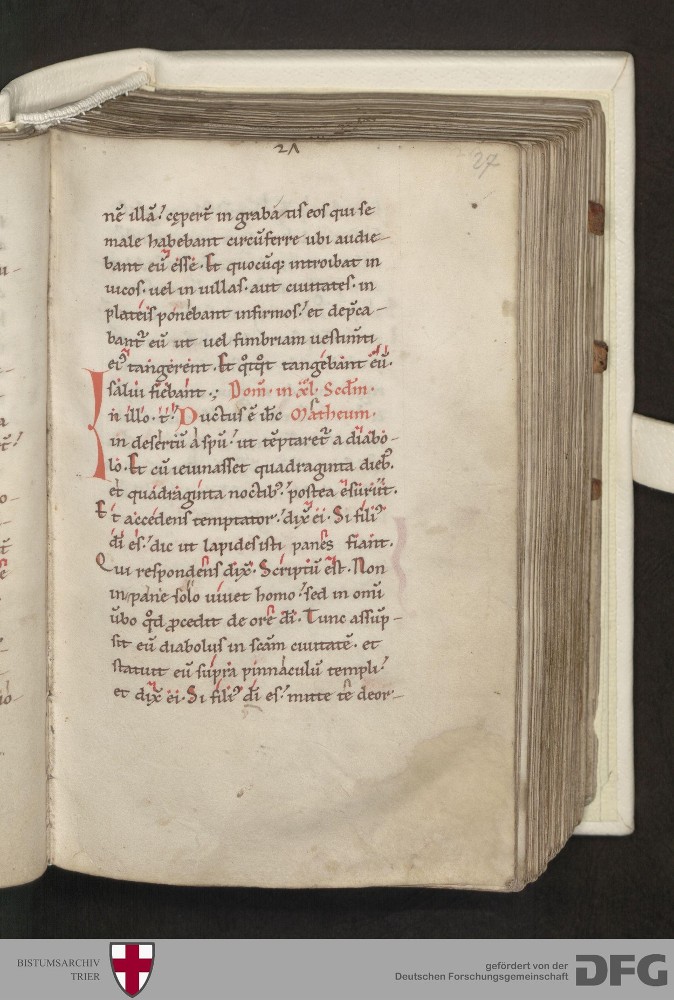 21
27
nē illā! cęper̄t in grabatis eos qui se
male habebant circūferre ubi audie-
bant eū esse. Et quocūq; introibat in
uicos. uel in uillas. aut ciuitates. in
plateis ponebant infirmos! et dep̄ca-
bant᷑ eū ut uel fimbriam uestim̄ti
eiꝰ tangerent. Et qͦtqͦt tangebant eū.
salui fiebant.; Dom̄. in xl. Scd̄m.
In illo. t̄. Ductus ē ih̄c Matheum.
in desertū a spū. ut tēptaret᷑ a diabo-
lo. Et cū ieiunasset quadraginta dieb;.
et quadraginta noctib;. postea esuriit.
Et accedens temptator. dix̄ ei. Si filiꝰ
dī es. dic ut lapides isti panes fiant.
Qui respondens dix̄. Scriptū est. Non
in pane solo uiuet homo. sed in omī
ūbo qd̄ ꝓcedit de ore dī. Tunc assūp-
sit eū diabolus in scām ciuitatē. et
statuit eū supra pinnaculū templi.
et dix̄ ei. Si filiꝰ dī es. mitte te deor-
BISTUMSARCHIV
TRIER
gefördert von der
Deutschen Forschungsgemeinschaft
DFG